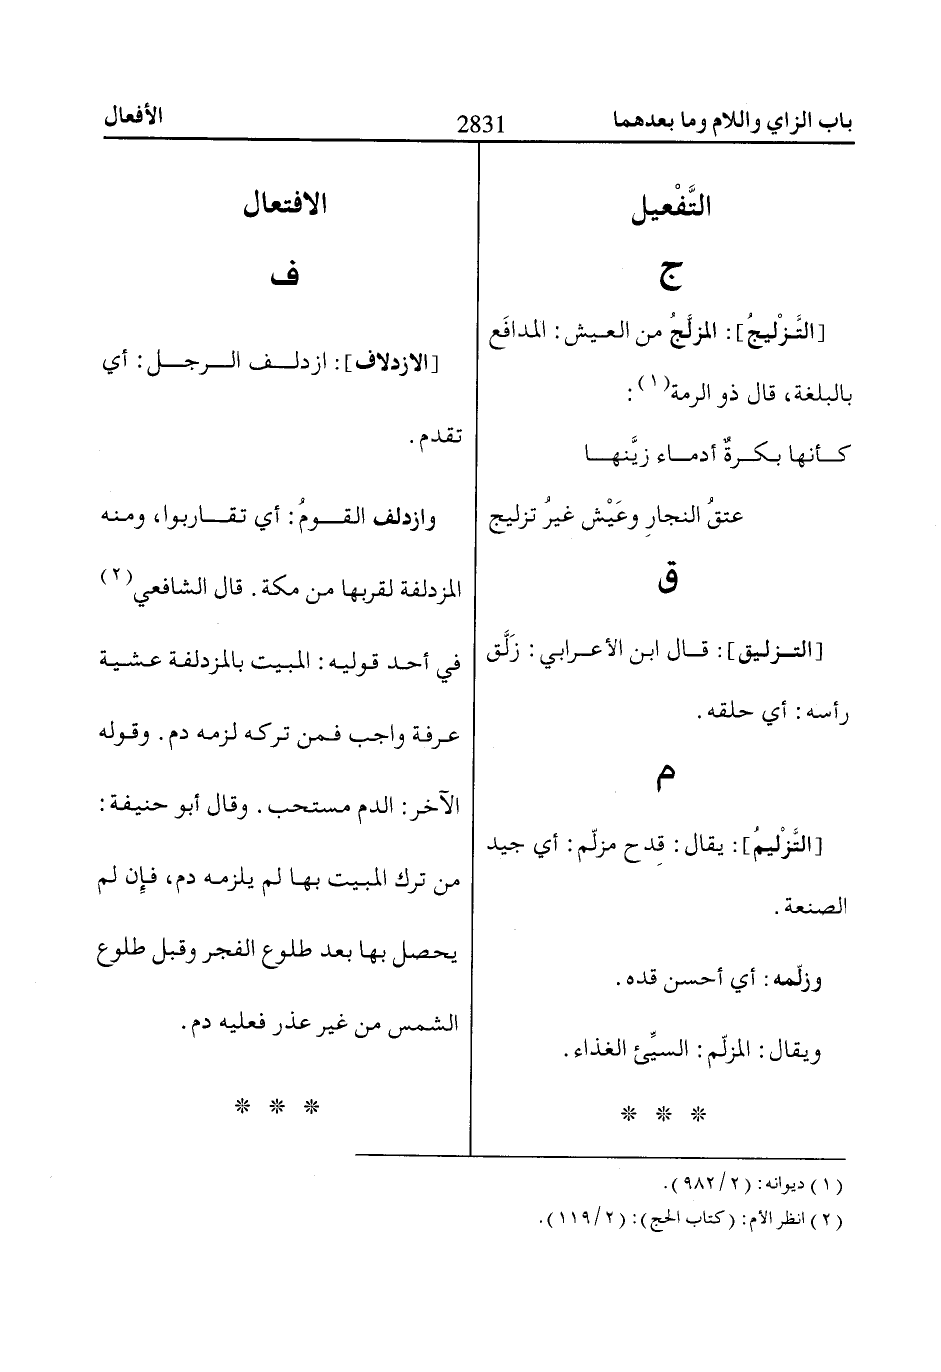 باب الزاي واللام وما بعدهما
2831
الأفعال
التَّفْعيل
ج
[التَّـزْليجُ]: المزلَّجُ من العـيش: المدافَع
بالبلغة، قال ذو الرمة(١):
كـأنها بكـرةٌ أدمـاء زيَّنهـا
عتقُ النجارِ وعَيْش غيرُ تزليج
ق
[التـزليق]: قـال ابن الأعـرابي: زَلَّق
رأسه: أي حلقه.
م
[التَّزْليمُ]: يقال: قِدح مزلّم: أي جيد
الصنعة.
وزلّمه: أي أحسن قده.
ويقال: المزلّم: السيِّئ الغذاء.
* * *
الافتعال
ف
[الازدلاف]: ازدلـف الـرجـل: أي
تقدم.
وازدلف القـومُ: أي تقـاربوا، ومنه
المزدلفة لقربها من مكة. قال الشافعي(٢)
في أحد قوليه: المبيت بالمزدلفة عشية
عرفة واجب فمن تركه لزمه دم. وقوله
الآخر: الدم مستحب. وقال أبو حنيفة:
من ترك المبيت بها لم يلزمه دم، فإن لم
يحصل بها بعد طلوع الفجر وقبل طلوع
الشمس من غير عذر فعليه دم.
* * *
(١) ديوانه: (٢/ ٩٨٢).
(٢) انظر الأم: (كتاب الحج): (٢/ ١١٩).